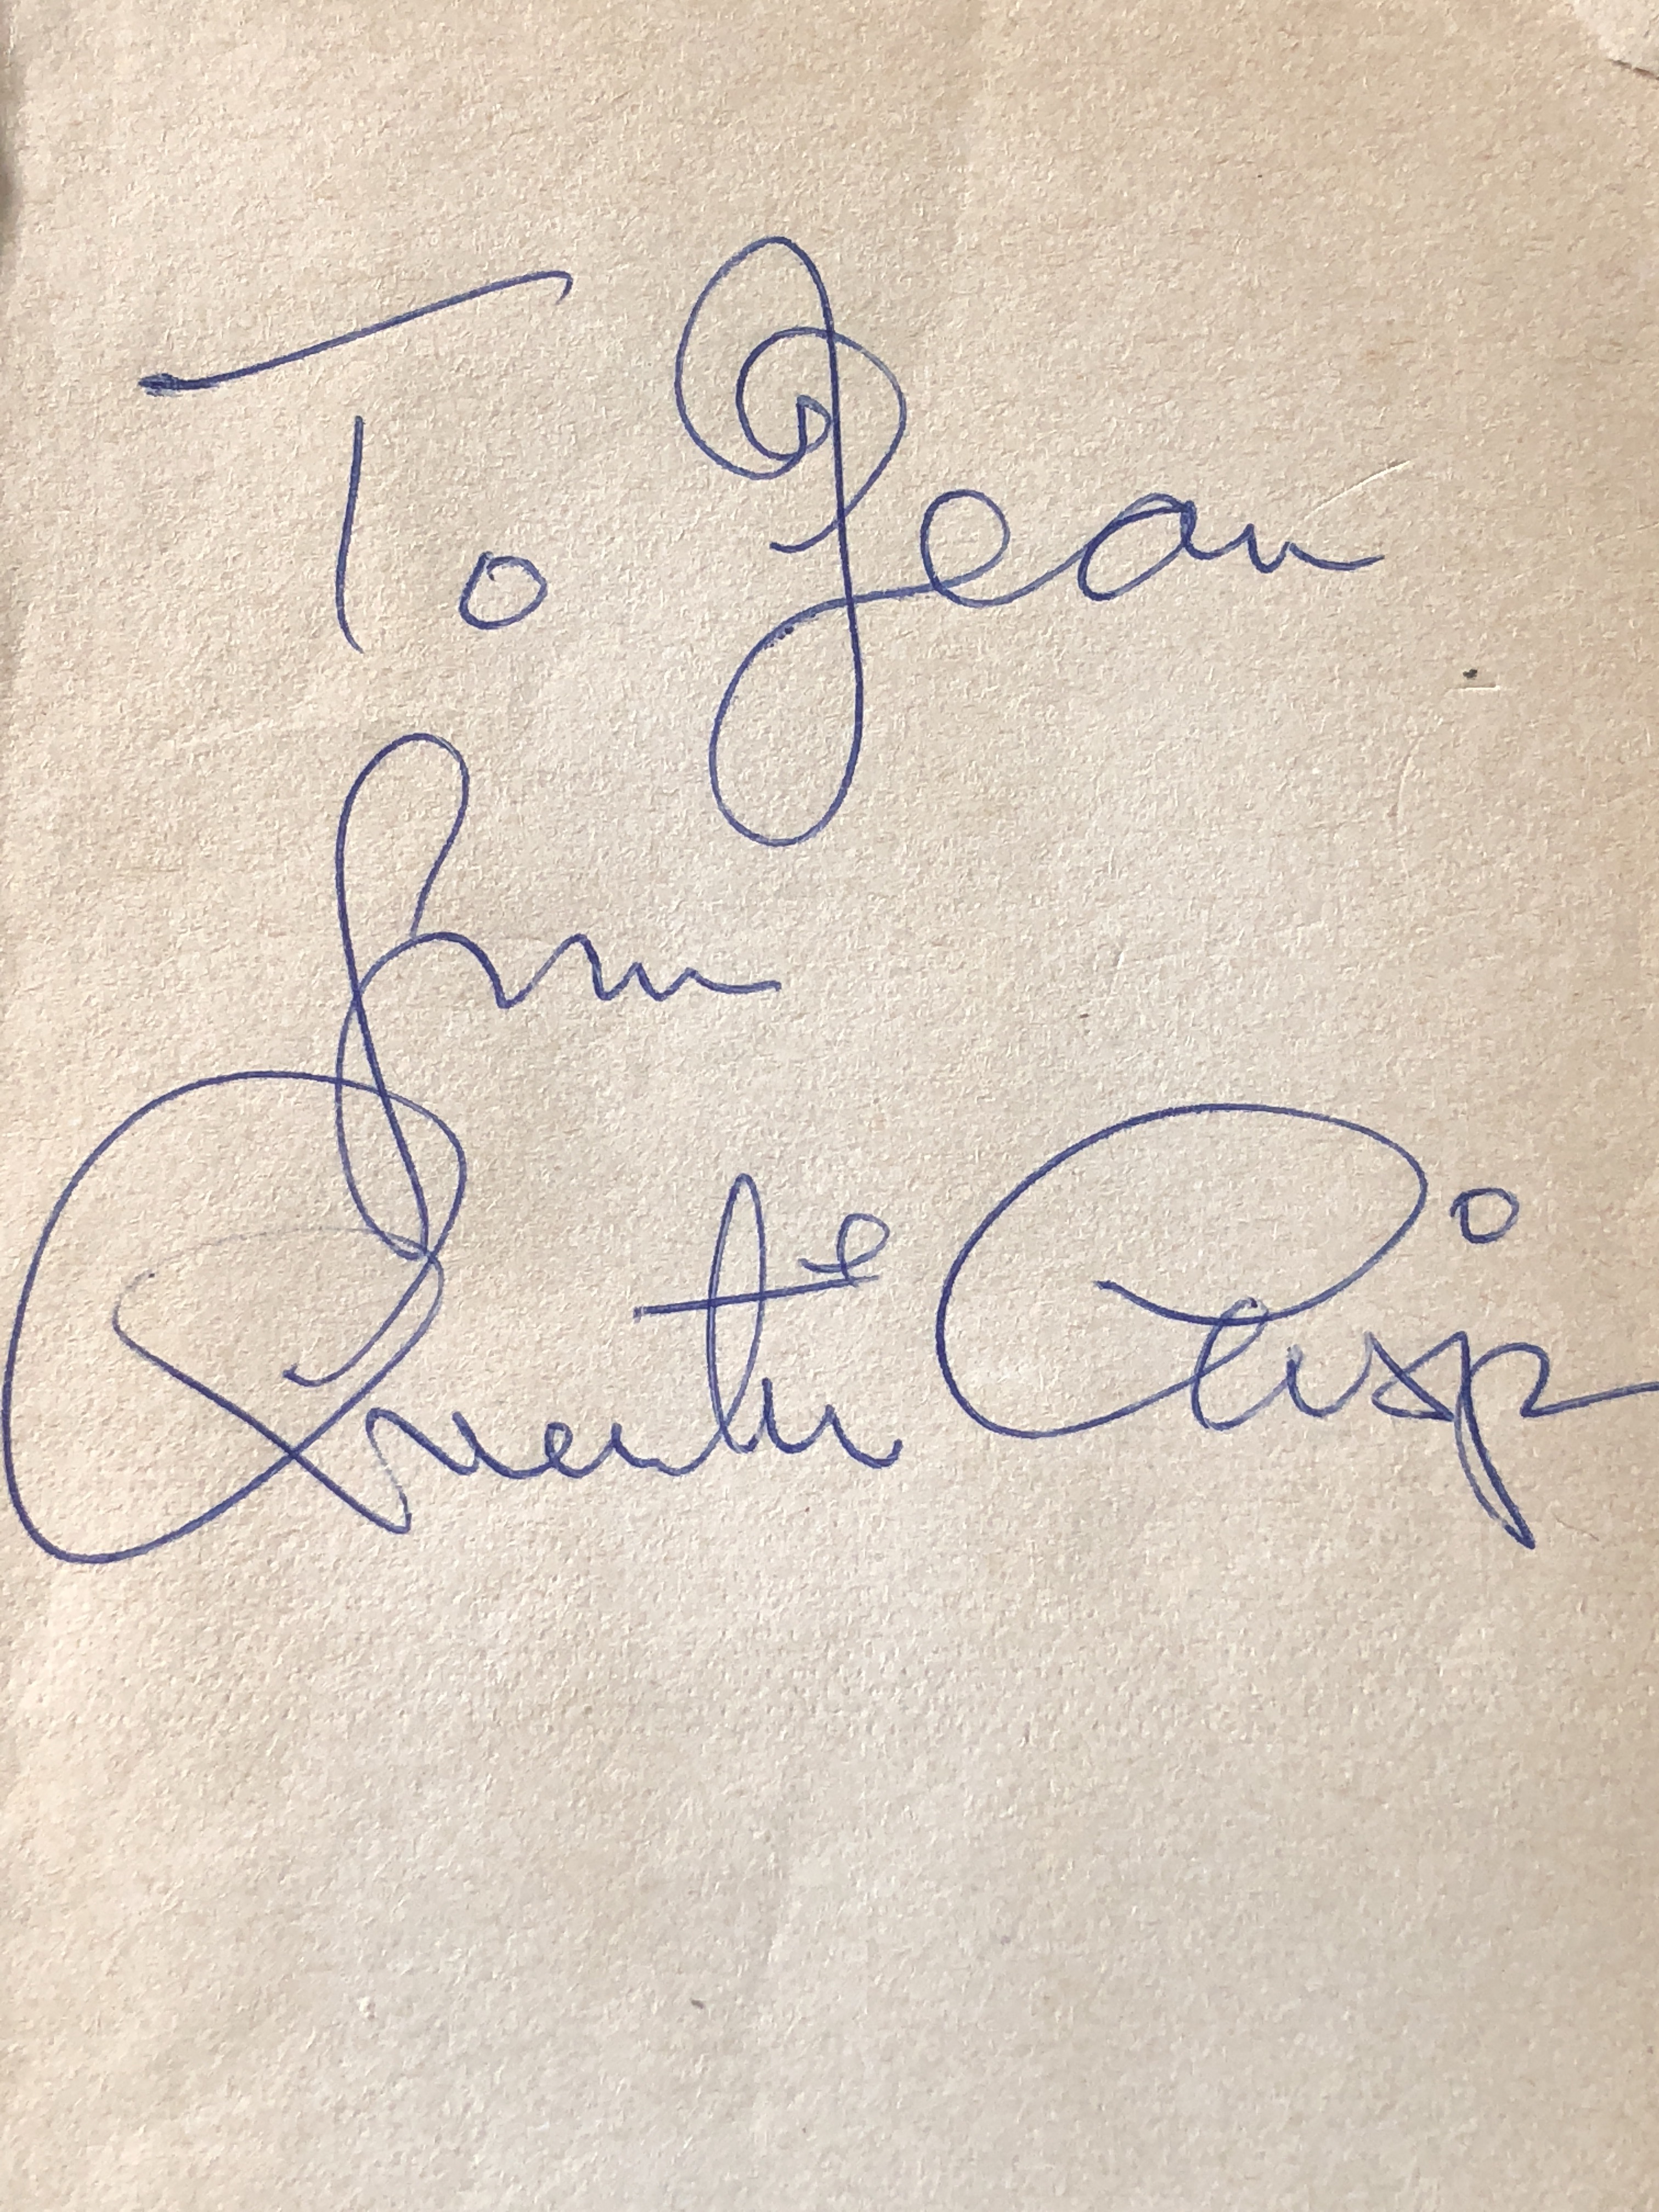 To Jean
from
Quentin Crisp